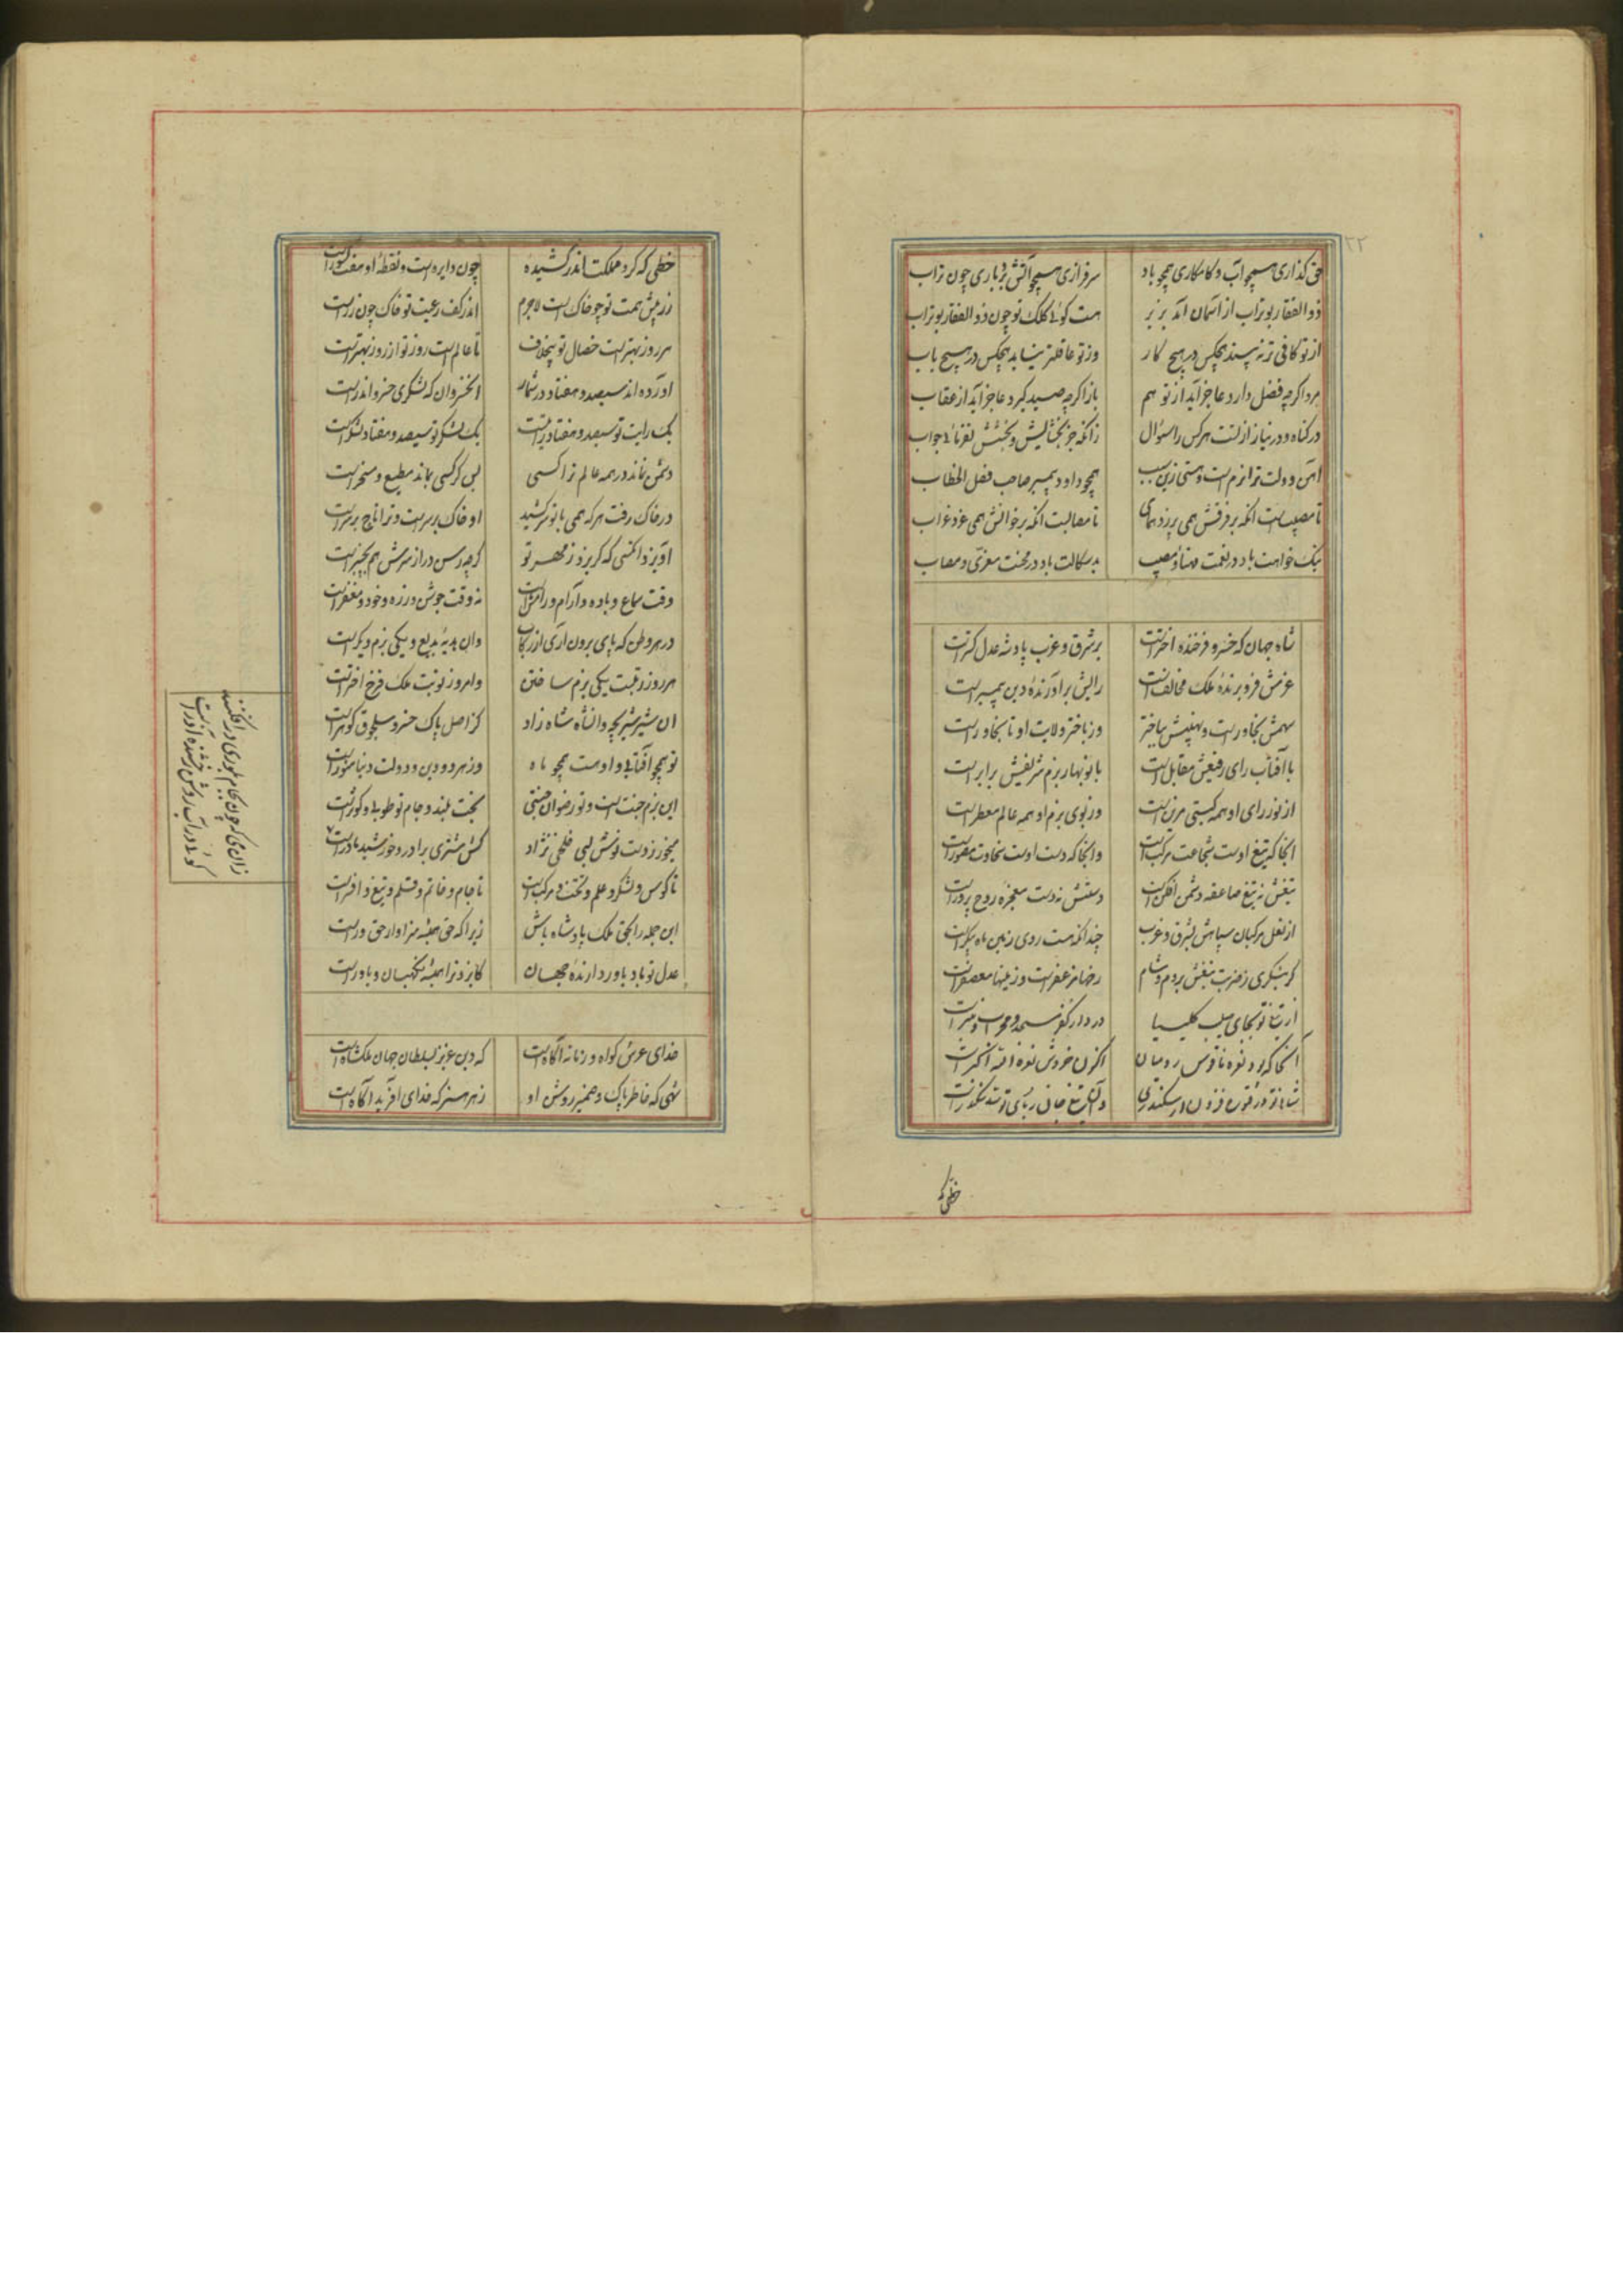 ۲۲
حق گذاری همچو آب و کامکاری همچو باد سرفرازی همچو آتش بردباری چون تراب
ذوالفقار بوتراب از آسمان آمد بزیر هست گوئی کلک تو چون ذوالفقار بوتراب
از تو کافی تر نه بیند هیچکس در هیچ کار وز تو عاقلتر نیابد هیچکس در هیچ باب
مرد اگرچه فضل دارد عاجز آید از تو هم باز اگرچه صید گیرد عاجز آید از عقاب
در گناه و در نیاز از تست هرکس را سئوال زانکه جز بخشایش و بخشش نفرمائی جواب
آهن و دولت ترا نرم است و هستی زین سبب همچو داود پیمبر صاحب فصل الخطاب
تا مصیب است آنکه بر فرقش همی پرد همای تا مصابست آنکه بر خوانش همی غرد غراب
نیک خواهت باد در نعمت مهنا و مصیب بدسگالت باد در محنت معزی و مصاب
شاه جهان که خسرو فرخنده اخترست بر شرق و غرب پادشه عدل گسترست
عزمش فرو برندهٔ ملک مخالفانست رایش برآورندهٔ دین پیمبرست
سهمش بخاورست و نهیبش بباختر وز باختر ولایت او تا بخاورست
با آفتاب رای رفیعش مقابل است با نوبهار بزم شریفش برابرست
از نور رای او همه گیتی مزین است وز بوی بزم او همه عالم معطرست
آنجا که تیغ اوست شجاعت مرکب است وآنجا که دست اوست سخاوت مصورست
تیغش نه تیغ صاعقه دشمن افکن است دستش نه دست معجزه روح پرورست
از نعل مرکبان سپاهش بشرق و غرب چندانکه هست روی زمین ماه پیکرست
گر بنگری ز ضربت تیغش بروم و شام رخها مزعفرست و زمینها معصفرست
از تیغ تو بجای صلیب کلیسیا در دار کفر مسجد و محراب و منبرست
آنجا که بود نعره ناقوس رومیان اکنون خروش نعرهٔ الله اکبرست
شاها تو در فتوح فزون از سکندری وآن تیغ جان ربای تو سد سکندرست
خطی که
خطی که گرد مملکت اندر کشیدهٔ چون دایره است و نقطهٔ او هفت کشورست
زر پیش همت تو چو خاک است لاجرم اندر کف رعیت تو خاک چون زرست
هر روز بهترست خصال تو بیخلاف تا عالم است روز تو از روز بهترست
آورده اند سیصد و هفتاد در شمار آن خسروان که لشکری خسرو اندرست
یک رایت تو سیصد و هفتاد رایتست یک لشکر تو سیصد و هفتاد لشکرست
دشمن نماند در همه عالم ترا کسی پس گر کسی بماند مطیع و مسخرست
در خاک رفت هرکه همی با تو سر کشید او خاک بر سرست و ترا تاج بر سرست
آویزد آنکسی که گریزد ز مهر تو گرچه رسن دراز سرش هم بچنبرست
وقت سماع و باده و آرام و رامش است نه وقت جوشن و زره و خود و مغفرست
در هر وطن که پای برون آری از رکاب وان بدیهٔ بدیع و یکی بزم دیگرست
هر روز نوبت یکی بزم ساختن وامروز نوبت ملک فرخ اخترست
آن شیر شیر بچه و آنشاه شاه زاد کز اصل پاک خسرو سلجوق گوهرست
تو همچو آفتابی و او هست همچو ماه وز هر دو دین و دولت دنیا منورست
این بزم جنت است و تو رضوان جنتی بخت بلند و جام تو طوبی و کوثرست
میخور ز دست نوش لبی خلخی نژاد کش مشتری برادر و خورشید مادرست
تا کوس و لشکر و علم و تخت و مرکب است تا جام و خاتم و قلم و تیغ و افسرست
این جمله را بحق ملک پادشاه باش زیرا که حق همیشه سزاوار حق ورست
عدل تو باد یاور دارندهٔ جهان کایزد ترا همیشه نگهبان و یاورست
خدای عرش گواه و زمانه آگاهست که دین عزیز بسلطان جهان ملکشاهست
شهی که خاطر پاک و ضمیر روشن او ز هر هنر که خدای آفرید آگاهست
زان می که چون بجام بلوری درافکنند
گوئی در آب روشن رخشنده آذرست